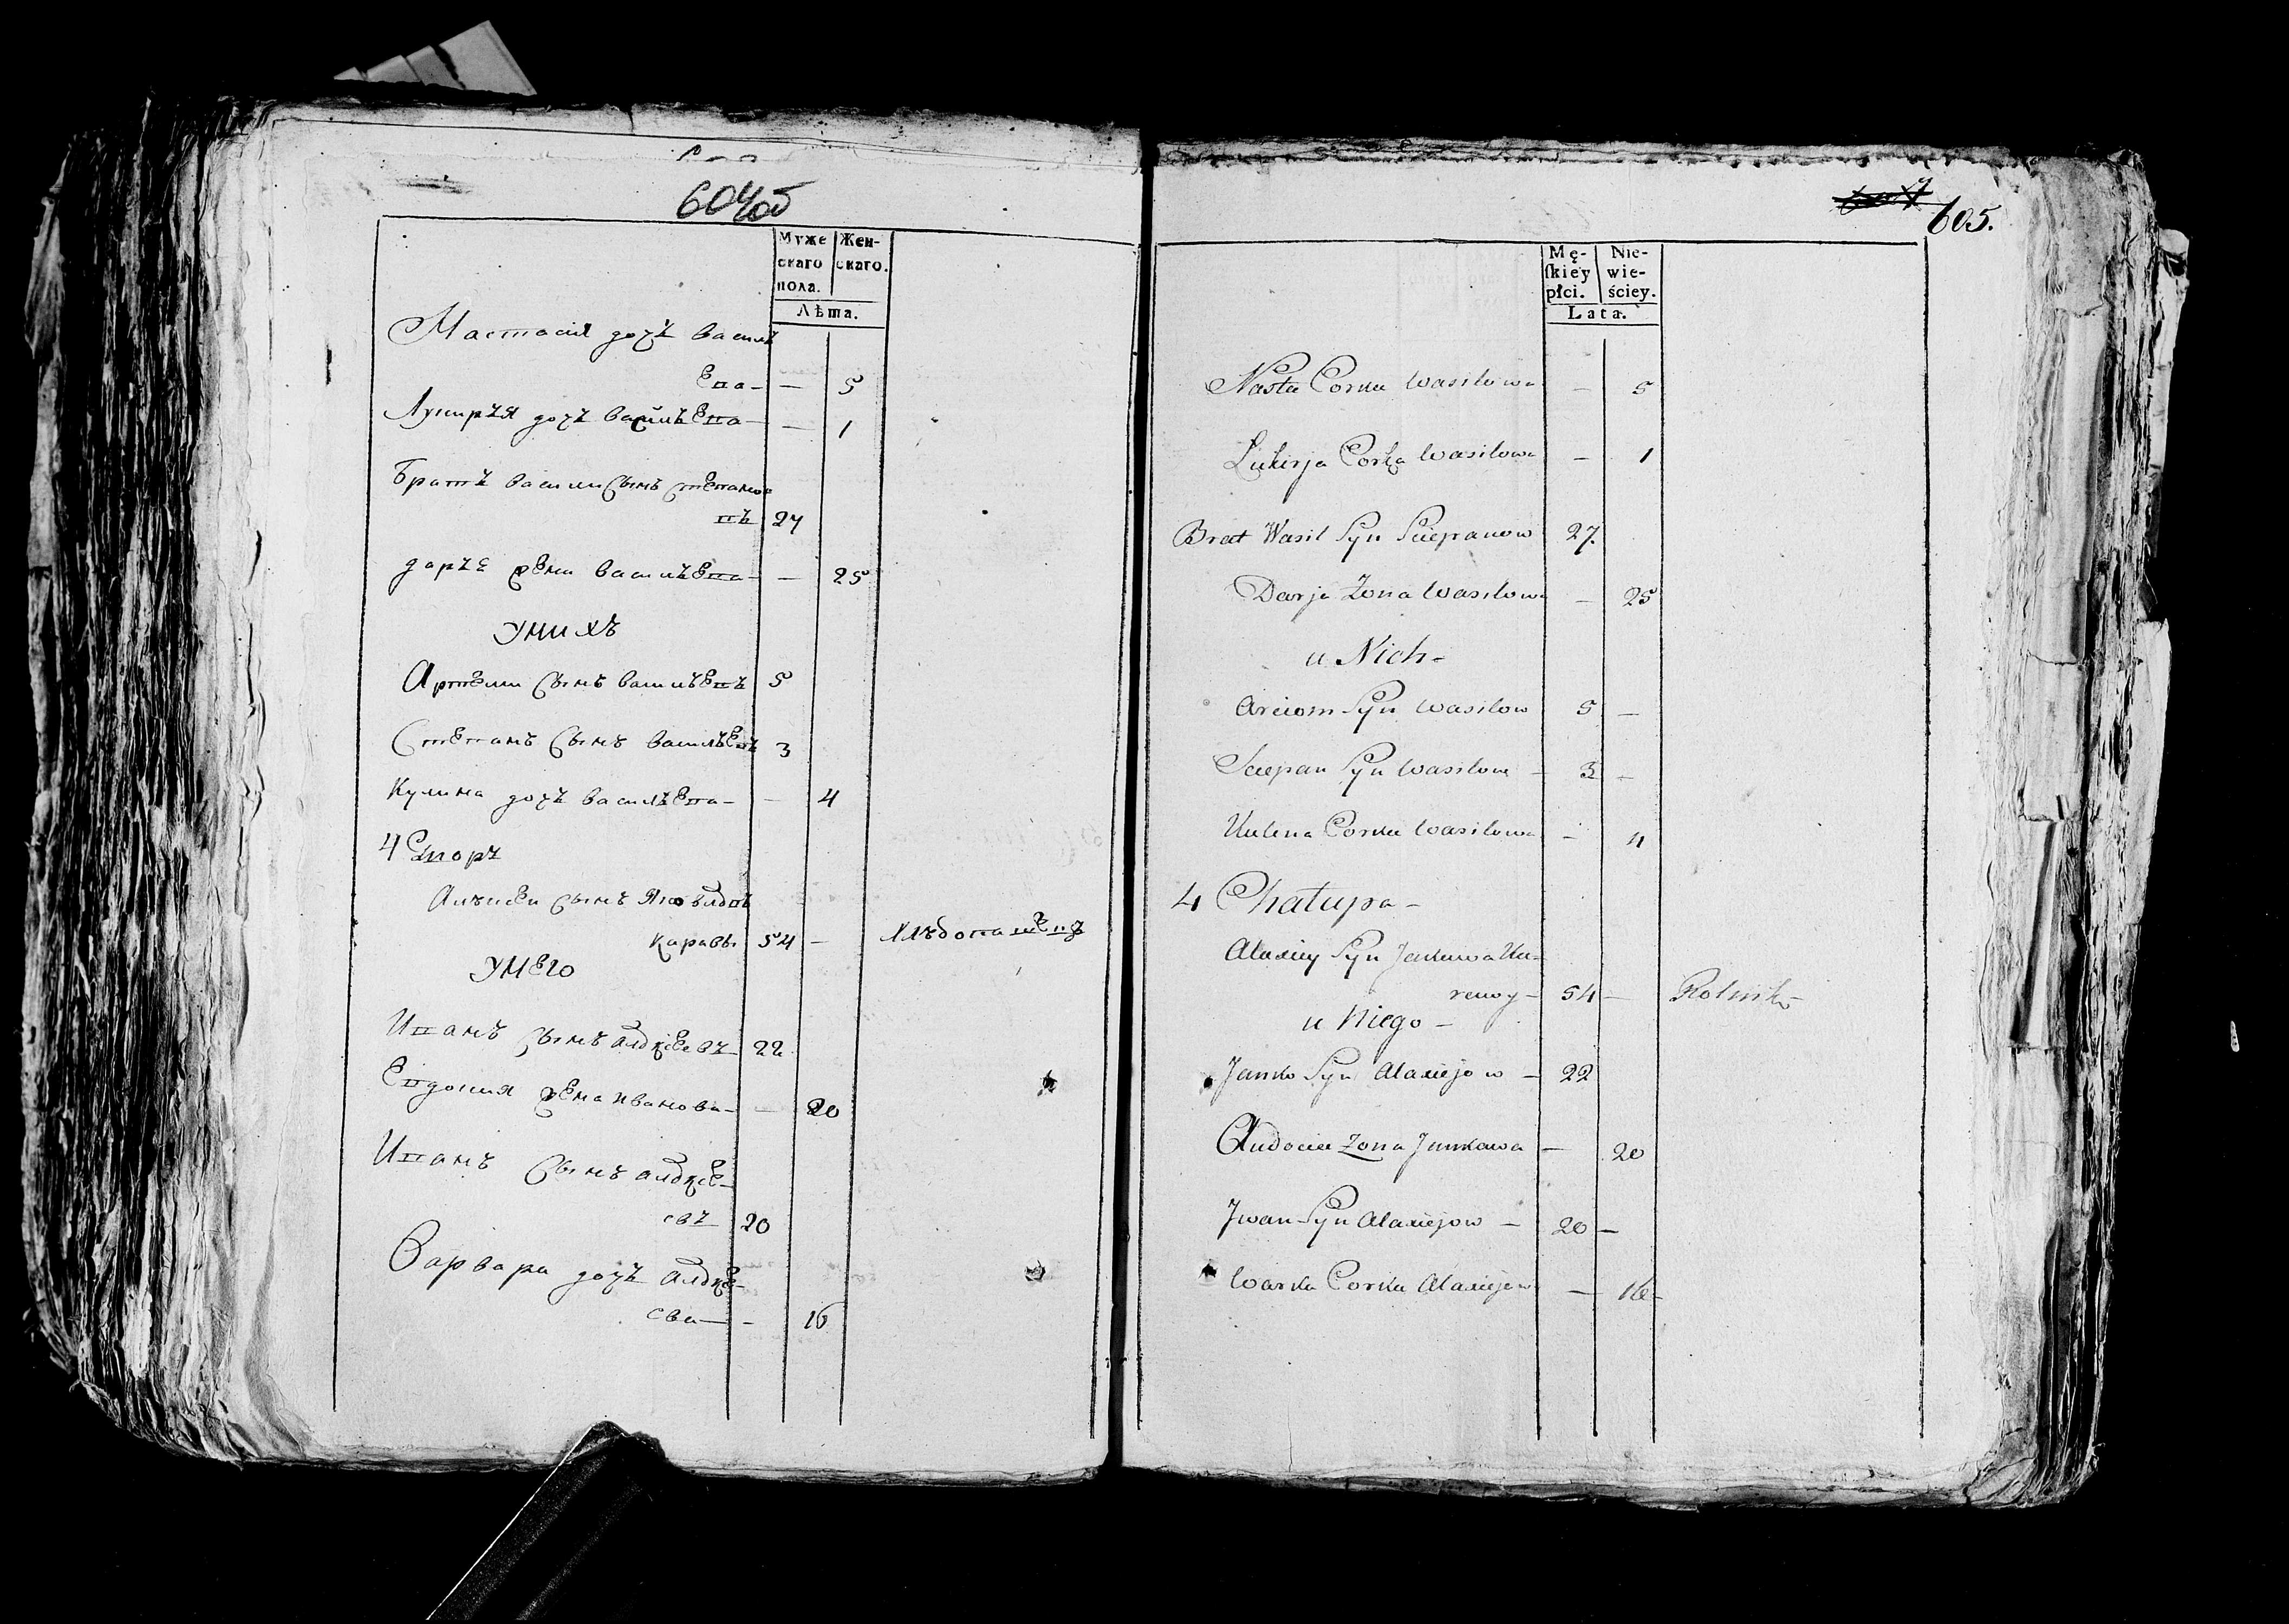 604об
Муже
скаго
пола.
Жен-
скаго.
Лѣта.
Настасия дочь василь
ева - — 5
Лукиръя дочь васильева — — 1
Братъ васили сынъ степано
въ 27
даръе жена васильева — — 25
У нихъ
Артеми сынъ васильевъ 5
Степанъ сынъ васильевъ 3
Кулина дочь васильева — — 4
4 Дворъ
сынъ
54 — хлѣбопашецъ
У него
Иванъ сынъ 22
Евдокия жена Иванова — — 20
Иванъ сынъ
евъ 20
Варвара дочь
ева — - 16
605.
Mę-
skiey
płci.
Nie-
wie-
ściey.
Lata.
Nasta Corka Wasilowa — 5
Lukirja Corka Wasilowa — 1
Brat Wasil Syn Sciepanow 27.
Darja Zona Wasilowa — 25
u Nich -
Arciom Syn Wasilow 5 —
Sciepan Syn Wasilow — 3 —
Kulina Corka Wasilowa — 4
4 Chałupa —
Alaxiey Syn
54 — Rolnik
u Niego —
Janko Syn Alaxiejow — 22
Audocia Zona Jankawa — 20
Jwan Syn Alaxiejow — 20 —
Warka Corka Alaxiejow — 16 -